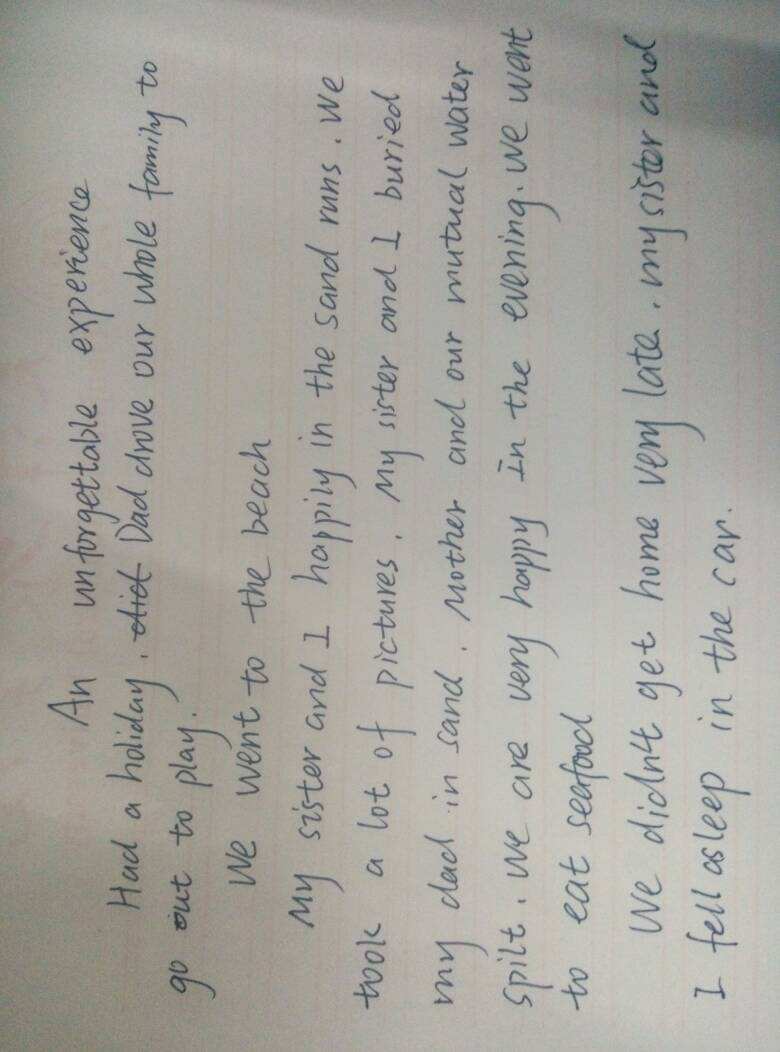 An unforgettable experience
Had a holiday. did Dad drove our whole family to
go out to play.
We went to the beach
My sister and I happily in the sand runs. We
took a lot of pictures. My sister and I buried
my dad in sand. Mother and our mutual water
spilt. We are very happy In the evening. We went
to eat seafood
We didn't get home very late. my sister and
I fell asleep in the car.